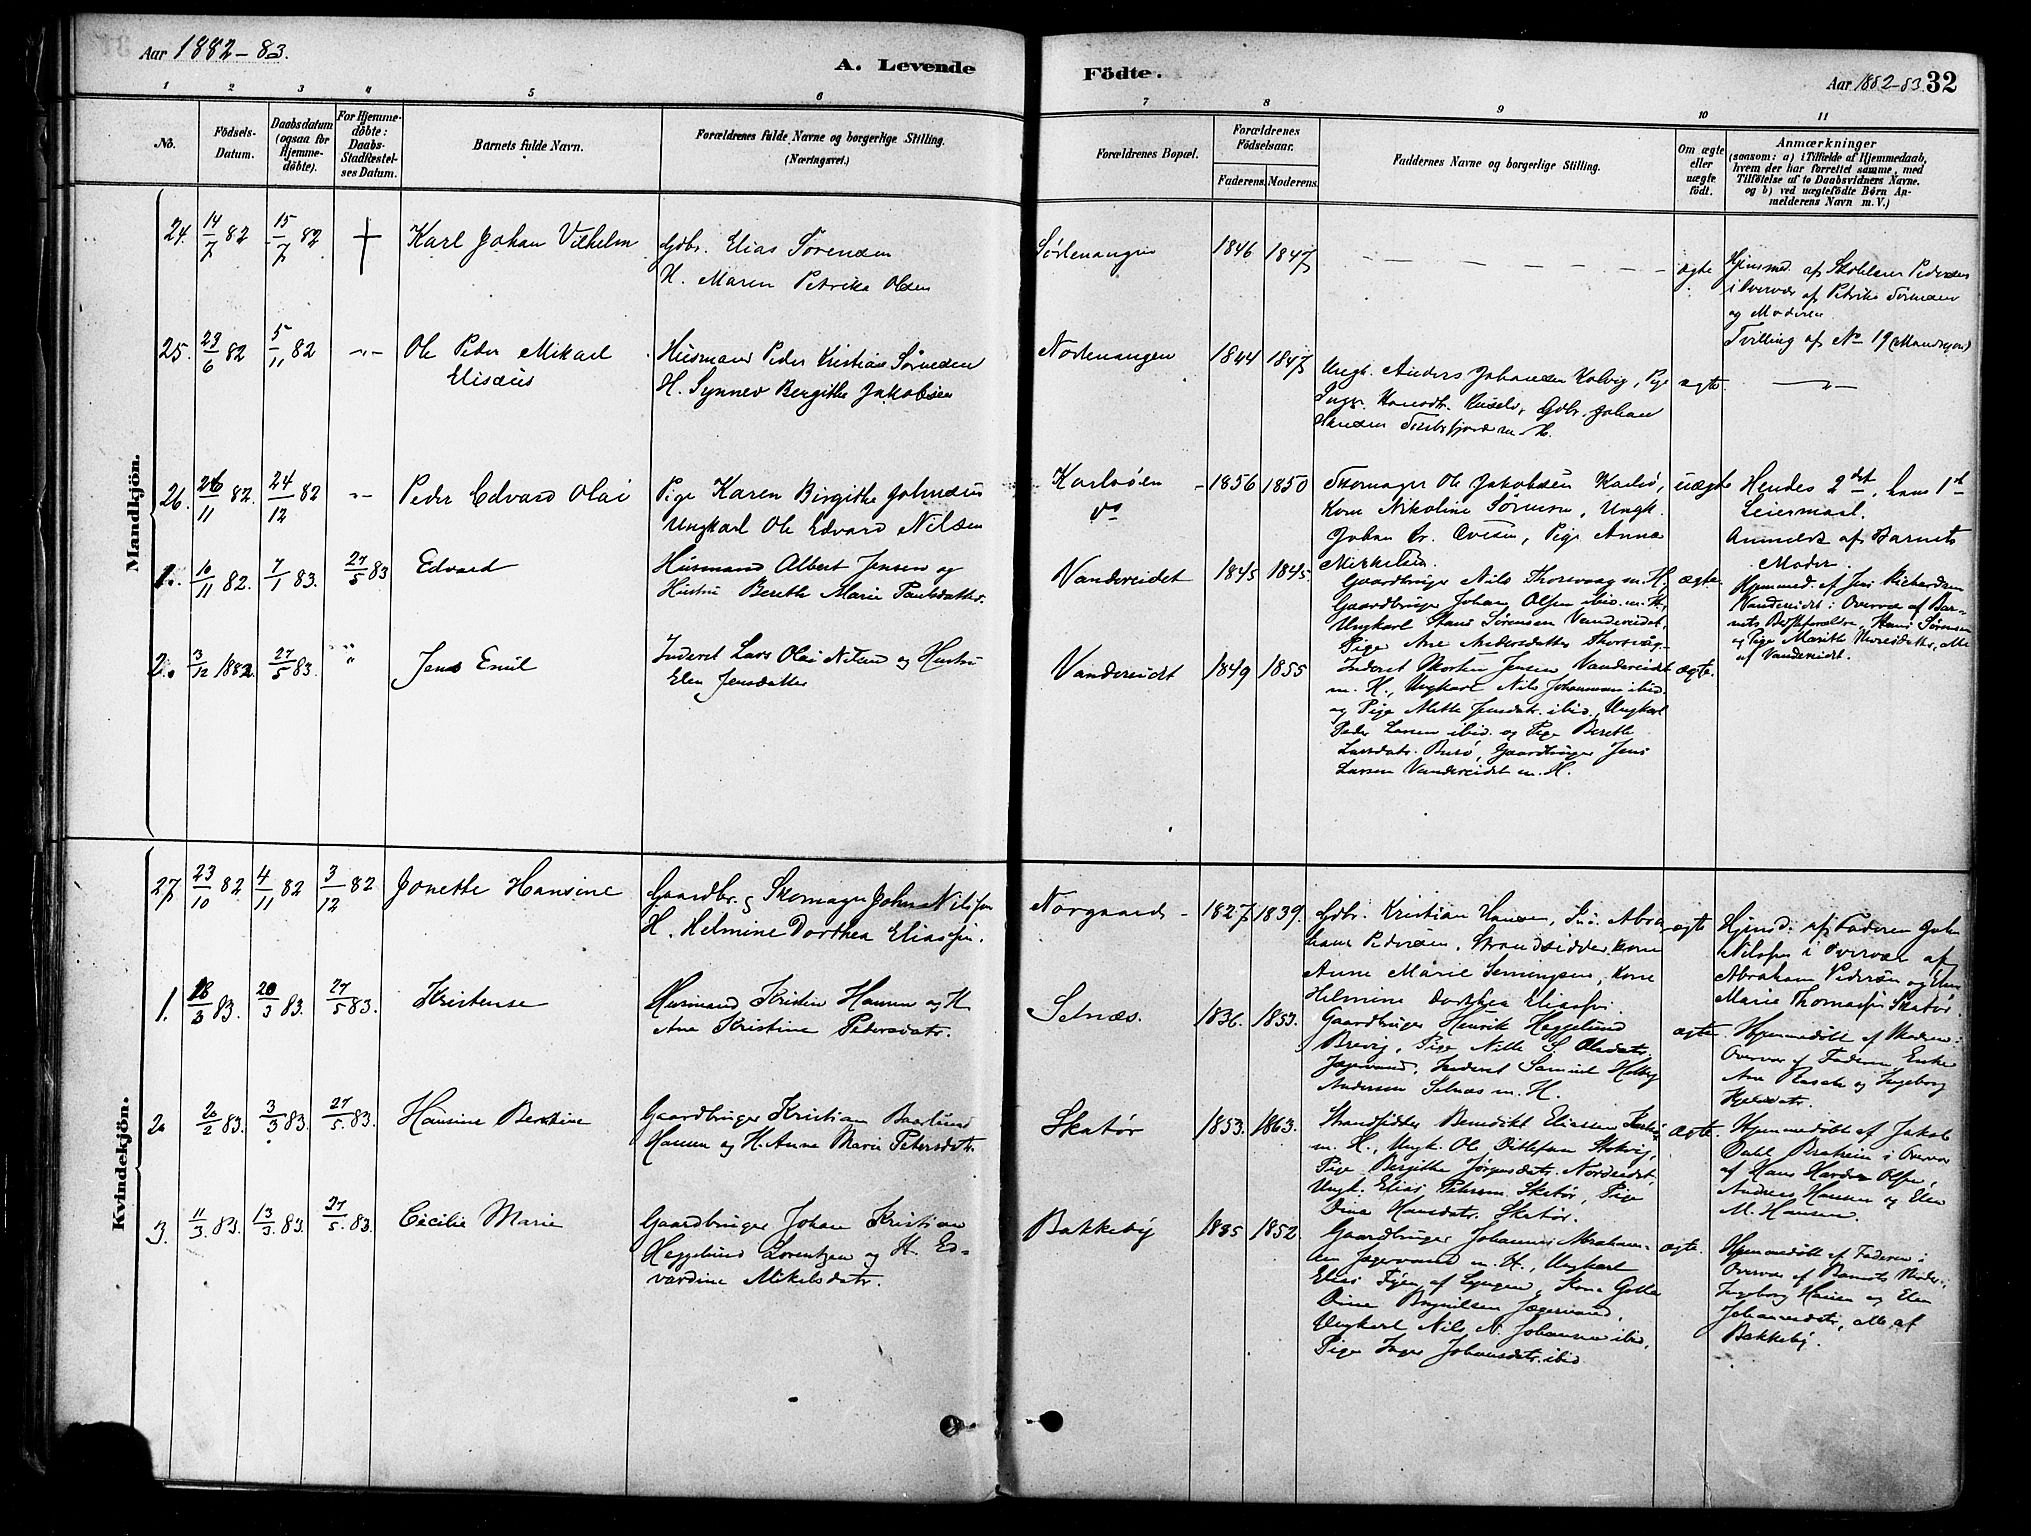 Aar 1882-83.
A. Levende
Födte.
Aar 1882-83. 32
1 2 3 4 5 6 7 8 9 10 11
No.
Födsels-Datum.
Daabsdatum (ogsaa for Hjemmedöbte).
For Hjemmedöbte: Daabs-Stadfæstelses Datum.
Barnets fulde Navn.
Forældrenes fulde Navne og borgerlige Stilling. (Næringsvei.)
Forældrenes Bopæl.
Forældrenes Födselsaar.
Faderens. Moderens.
Faddernes Navne og borgerlige Stilling.
Om ægte eller uægte födt.
Anmærkninger
(saasom: a) i Tilfælde af Hjemmedaab,
hvem der har forrettet samme, med
Tilföielse af to Daabsvidners Navne,
og b) ved uægtefödte Börn Anmelderens Navn m. V.)
Mandkjön.
24. 14/7 82 15/7 82 † Karl Johan Vilhelm
Gdbr. Elias Sörensen
H. Maren Petrika Olsen
Sörlenangen 1846 1847
ægte
Hjemmed. af Pedersen
i Overvær af Petrika Sörensen
og Moderen.
Tvilling af No 19 (Mandkjön)
25. 23/6 82 5/11 82 -"- Ole Peder Mikael
Elisæus
Husmand Peder Kristian Sörensen
H. Synnev Bergithe Jakobsen
Nordenangen 1844 1847
Ungk. Anders Johansen Kalvig, Pige
Gdbr. Johan
Hansen m. H.
ægte -"-
26. 26/11 82. 24/12 82 -"- Peder Edvard Olai
Pige Karen Birgithe Johnsen
Ungkarl Ole Edvard Nilsen
Karlsöen 1856 1850
do
Skomager Ole Jakobsen Karlsö,
Kone Nikoline Sörensen, Ungk.
Johan Ovesen, Pige Anna
Mikkelsen
uægte
Hendes 2det, hans 1ste
Leiermaal.
Anmeldt af Barnets
Moder.
1. 10/11 82. 7/1 83. 27/5 83 Edvard
Husmand Albert Jensen og
Hustru Berethe Marie Paulsdatter.
Vandereidet 1845 1845.
Gaardbruger Nils Thorsvaag m. H.,
Gaardbruger Johan Olsen ibid. m. H.,
Ungkarl Hans Sörensen Vandereidet,
Pige Ane Andersdatter Thorsvåg.
ægte.
Hjemmed. af Jens Richardsen
Vandereidet i Overvær af Barnets
Bedsteforældre, Hans Sörensen
og Pige Marith, alle
af Vandereidet.
2. 3/12 1882. 27/5 83. " Jens Emil
Inderst Lars Olai Nilsen og Hustru
Elen Jensdatter
Vandereidet 1849 1855
Inderst Morten Jensen Vandereidet
m. H., Ungkarl Nils Johannesen ibid.
og Pige Mette Jensdatr. ibid., Ungkarl
Peder Larsen ibid. og Pige Berethe
Larsdatr. Burö, Gaardbruger Jens
Larsen Vandereidet m. H.
ægte.
Kvindekjön.
27 23/10 82 4/11 82 3/12 82 Jonette Hansine
Gaardbr. og Skomager John Nilssen
H. Helmine Dorthea Eliassen.
Norgaard 1827 1839.
Gdbr. Kristian Hansen, Abraham
Pedersen, Strandsidderkone
Anne Marie Semingsen, Kone
Helmine Dorthea Eliassen.
ægte
Hjemd. af Faderen John
Nilssen i Overvær af
Abraham Pedersen og Elen
Marie Thomassen Skatör.
1. 18/3 83. 20/3 83. 27/5 83. Kristense
Husmand Kristen Hansen og H.
Ane Kristine Pedersdatr.
Selnæs. 1836. 1853.
Gaardbruger Henrik Heggelund
Brevig, Pige Nille S. Olsdatr.
Jægervand, Inderst Samuel Helberg
Andersen Selnæs m. H.
ægte.
Hjemmedöbt af Moderen i
Overvær af Faderen, Enke
Ane Rasch og Ingeborg
Kjelsdatr.
2. 20/2 83. 3/3 83. 27/5. 83. Hansine Berntine
Gaardbruger Kristian Baarlund
Hansen og H. Anne Marie Petersdatr.
Skatör 1853. 1863.
Strandsidder Benedikt Eliassen
m. H., Ungk. Ole Ditlefsen Stokvig,
Pige Bergithe Jörgensdatr. Nordeidet,
Ungk. Elias Petersen Skatör, Pige
Dina Hansdatr. Skatör.
ægte.
Hjemmedöbt af Jakob
Dahl i Overvær
af Hans Olsen,
Andreas Hansen og Elen
M. Hansen.
3. 11/3. 83. 13/3. 83. 27/5. 83. Cecilie Marie
Gaardbruger Johan Kristian
Heggelund Lorentzen og H. Edvardine
Mikelsdatr.
Bakkeby 1835 1852.
Gaardbruger Johannes Abrahamsen
Jægervand m. H., Ungkarl
Elias af Lyngen, Kone Golla
Dina Jægervand,
Ungkarl Nils N. Johannesen ibid,
Pige Inger Johansdatr. ibid.
ægte.
Hjemmedöbt af Faderen i
Overvær af Barnets Moder,
Ingeborg Hansen og Elen
Johannesdatr., alle af
Bakkeby.